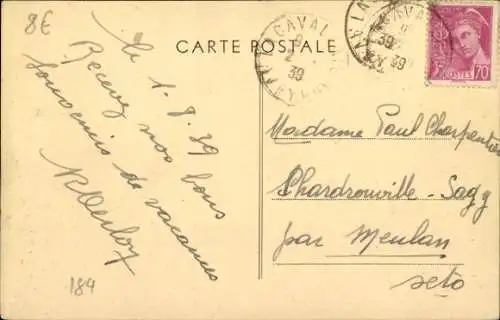 8€
CARTE POSTALE
CAVAL
2
39
39
POSTES
70
le 1.8.39
Recevez nos bons
souvenirs de vacances
184
Madame Paul Charpentier
Chardronville - Sagy
par Meulan
seto